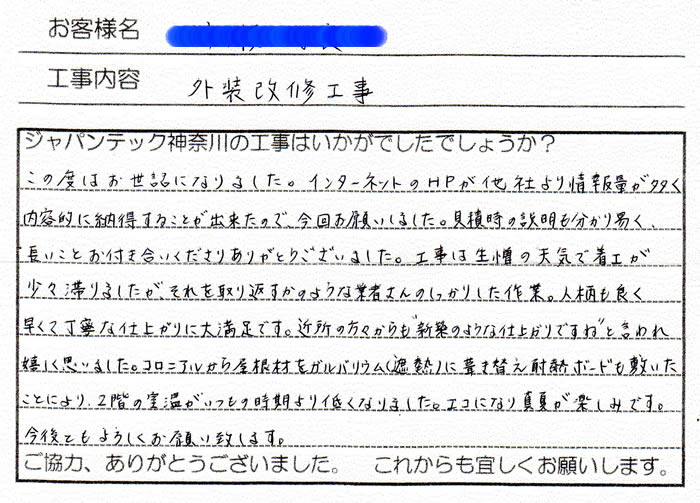 お客様名
工事内容 外装改修工事
ジャパンテック神奈川の工事はいかがでしたでしょうか？
この度はお世話になりました。インターネットのHPが他社より情報量が多く
内容的に納得することが出来たので、今回お願いしました。見積時の説明も分かり易く、
長いことお付き合いくださりありがとうございました。工事は生憎の天気で着工が
少々滞りましたが、それを取り返すかのような業者さんのしっかりした作業。人柄も良く
早くて丁寧な仕上がりに大満足です。近所の方々からも"新築のような仕上がりですね"と言われ
嬉しく思いました。コロニアルから屋根材をガルバリウム(遮熱)に葺き替え耐熱ボードも敷いた
ことにより、2階の室温がいつもの時期より低くなりました。エコになり真夏が楽しみです。
今後ともよろしくお願い致します。
ご協力、ありがとうございました。 これからも宜しくお願いします。